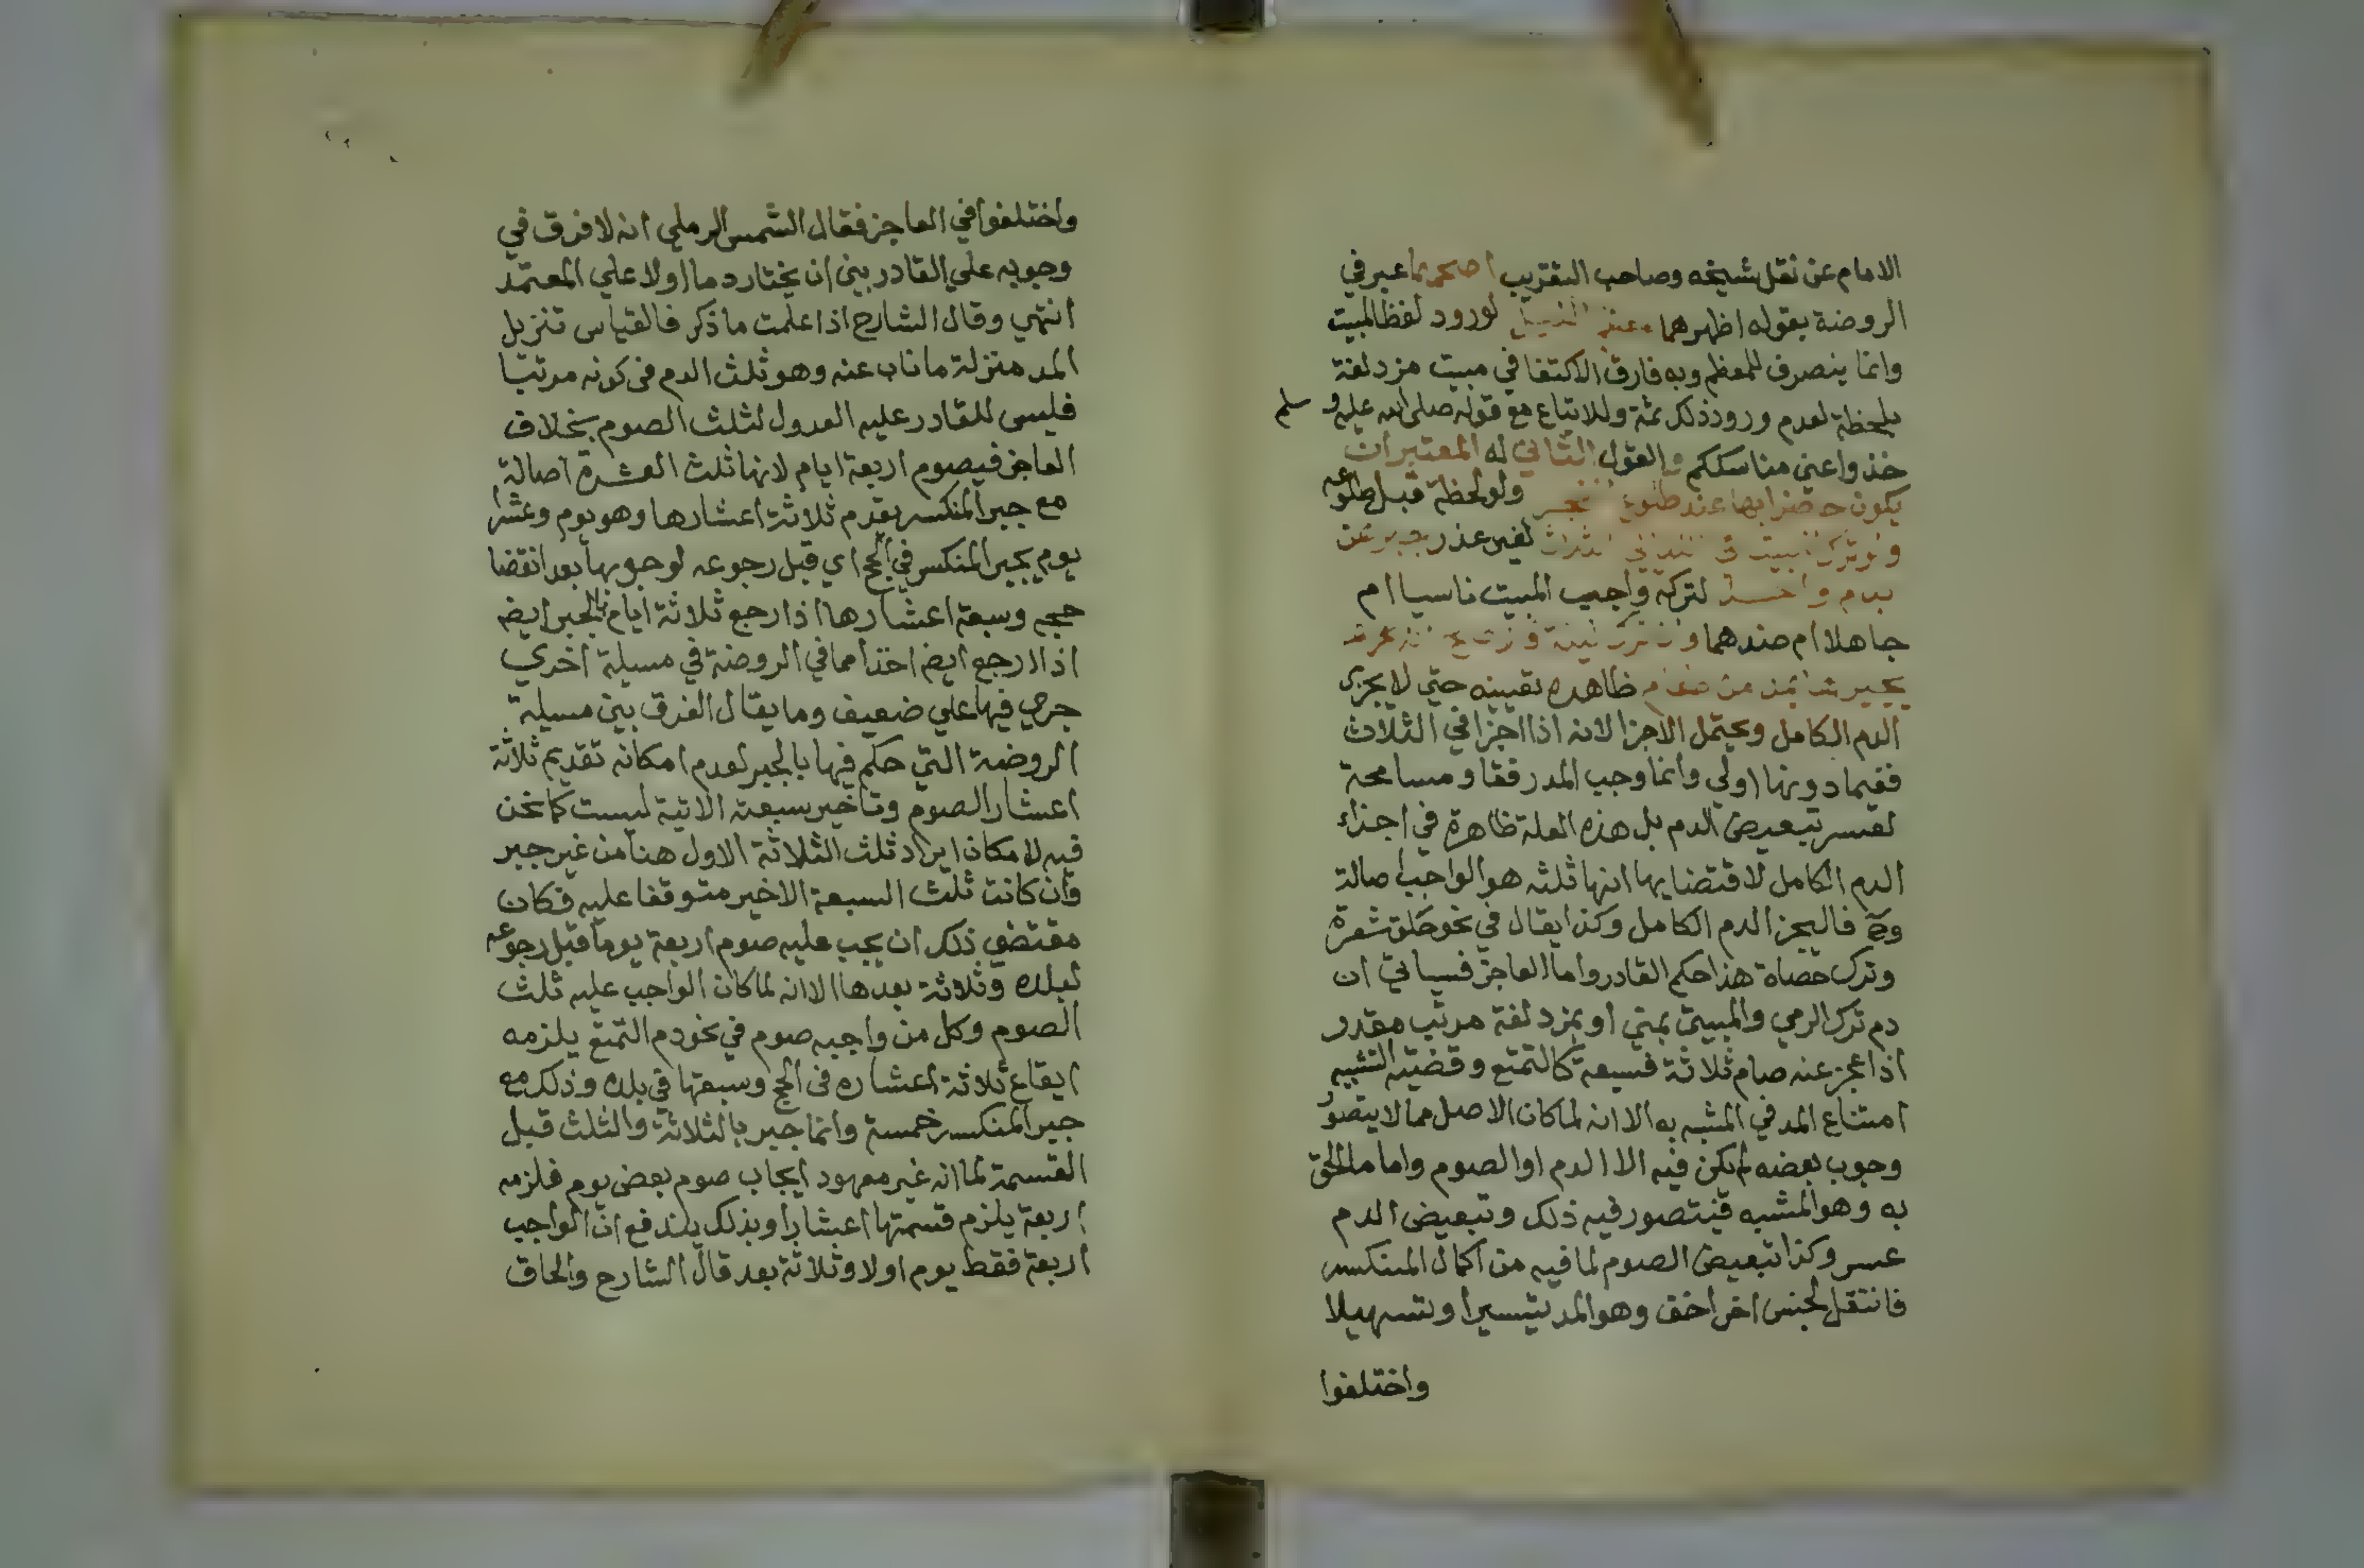 الامام عن نقل شيخه وصاحب التقريب اصحهما عبر في
الروضة بقوله اظهرهما معظم الليل لورود لفظ المبيت
وانما ينصرف للمعظم وبه فارق الاكتفا في مبيت مزدلفة
بلحظة لعدم ورود ذلك ثمة وللاتباع مع قوله صلى الله عليه وسلم
خذوا عني مناسككم والقول الثاني له المعتبر ان
يكون حاضرا بها عند طلوع الفجر ولو لحظة قبل طلوعه
ولو ترك المبيت في الليالي الثلاث لغير عذر جبرهن
بدم واحد لتركه واجب المبيت ناسيا ام
جاهلا ام ضدهما وان ترك ليلة
يجبر بمد من طعام ظاهره تعيينه حتي لا يجزي
الدم الكامل ويحتمل الاجزا لانه اذا اجزا في الثلاث
ففيما دونها اولي وانما وجب المد رفقا ومسامحة
لعسر تبعيض الدم بل هذه العلة ظاهرة في اجزاء
الدم الكامل لاقتضايها انها ثلثه هو الواجب اصالة
وح فاليجز الدم الكامل وكذا يقال في نحو حلق شعرة
وترك حصاة هذا حكم القادر واما العاجز فسياتي ان
دم ترك الرمي والمبيت بمني او بمزدلفة مرتب مقدر
اذا عجز عنه صام ثلاثة فسبعة كالتمتع وقضية التشبيه
امتناع المد في المشبه به الا انه لما كان الاصل مما لا يتصور
وجوب بعضه لم يكن فيه الا الدم او الصوم واما ما الحق
به وهو المشبه فيتصور فيه ذلك وتبعيض الدم
عسر وكذا تبعيض الصوم لما فيه من اكمال المنكسر
فانتقل لجنس اخر اخف وهو المد تيسيرا وتسهيلا
واختلفوا
واختلفوا في العاجز فقال الشمس الرملي انه لا فرق في
وجوبه علي القادر بين ان يختار دما او لا علي المعتمد
انتهي وقال الشارح اذا علمت ما ذكر فالقياس تنزيل
المد منزلة ما ناب عنه وهو ثلث الدم في كونه مرتبا
فليس للقادر عليه العدول لثلث الصوم بخلاف
العاجز فيصوم اربعة ايام لانها ثلث العشرة اصالة
مع جبر المنكسر يقدم ثلاثة اعشارها وهو يوم وعشر
يوم يجبر المنكسر في الحج اي قبل رجوعه لوجوبها بعد انقضا
حجه وسبعة اعشارها اذا رجع ثلاثة ايام بالجبر ايضه
اذا لا رجع ايضه اخذا مما في الروضة في مسيلة اخري
جري فيها علي ضعيف وما يقال الفرق بين مسيلة
الروضة التي حكم فيها بالجبر لعدم امكانه تقديم ثلاثة
اعشار الصوم وتاخير سبعته الاتية ليست كما نحن
فيه لامكان ايراد ثلث الثلاثة الاول هنا من غير جبر
وان كانت ثلث السبعة الاخير متوقفا عليه فكان
مقتضي ذلك ان يجب عليه صوم اربعة يوما قبل رجوعه
لبلده وثلاثة بعدها الا انه لما كان الواجب عليه ثلث
الصوم وكل من واجبه صوم في نحو دم التمتع يلزمه
ايقاع ثلاثة اعشاره في الحج وسبعتها في بلده وذلك مع
جبر المنكسر خمسة وانما جبر بالثلاثة والثلث قبل
القسمة لما انه غير معهود ايجاب صوم بعض يوم فلزمه
اربعة يلزم قسمتها اعشارا وبذلك يندفع ان الواجب
اربعة فقط يوم اولا وثلاثة بعد قال الشارح والحاق